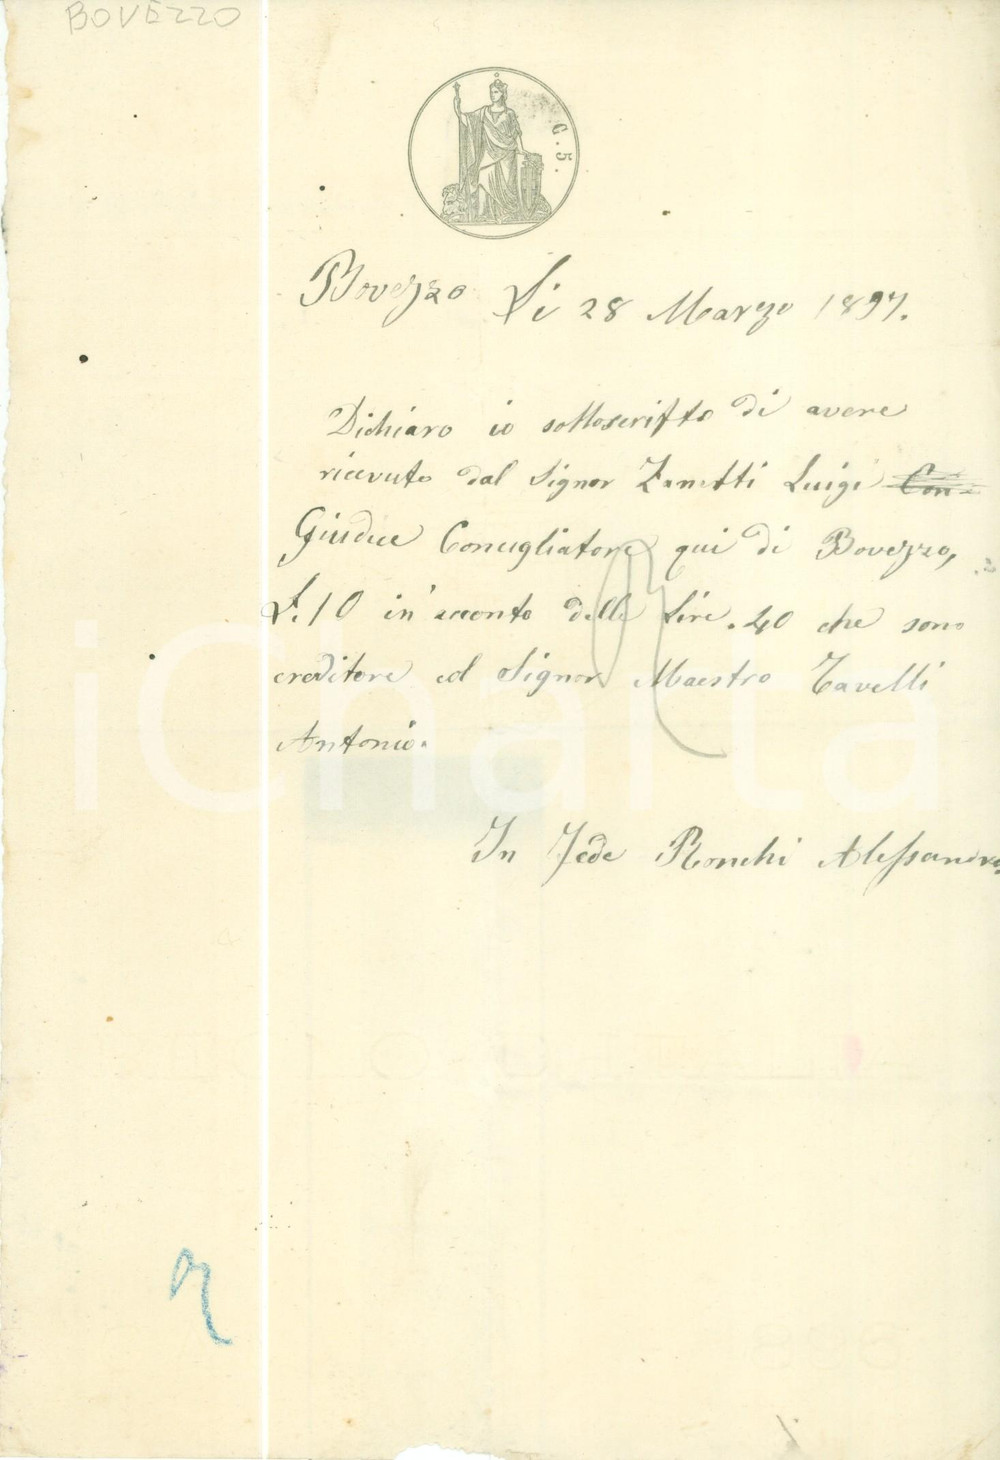 BOVEZZO
C. 5.
Bovezzo Li 28 Marzo 1897.
Dichiaro io sottoscritto di avere
ricevuto dal Signor Zanetti Luigi Con
Giudice Concigliatore qui di Bovezzo,
L. 10 in acconto delle Lire. 40 che sono
creditore al Signor Maestro Tavelli
Antonio.
In Fede Ronchi Alessandro
iCharta